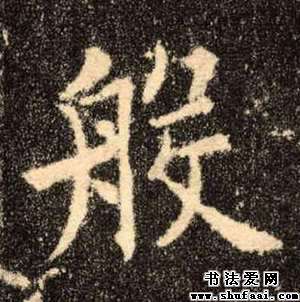 般
书法爱网
www.shufaai.com